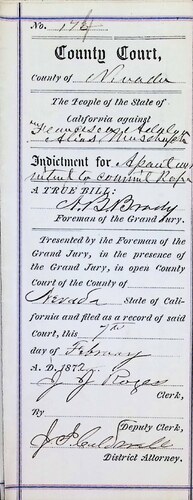 No. 174
County Court,
County of Nevada
The People of the State of
California against
Francisco Adolph
Alias
Indictment for Assault with
intent to commit Rape
A TRUE BILL:
A. B. Brady
Foreman of the Grand Jury.
Presented by the Foreman of the
Grand Jury, in the presence of
the Grand Jury, in open County
Court of the County of
Nevada State of Cali-
fornia and filed as a record of said
Court, this 7th
day of February
A. D. 1872
J J Rogers
Clerk,
By
Deputy Clerk,
J. S. Caldwell
District Attorney.